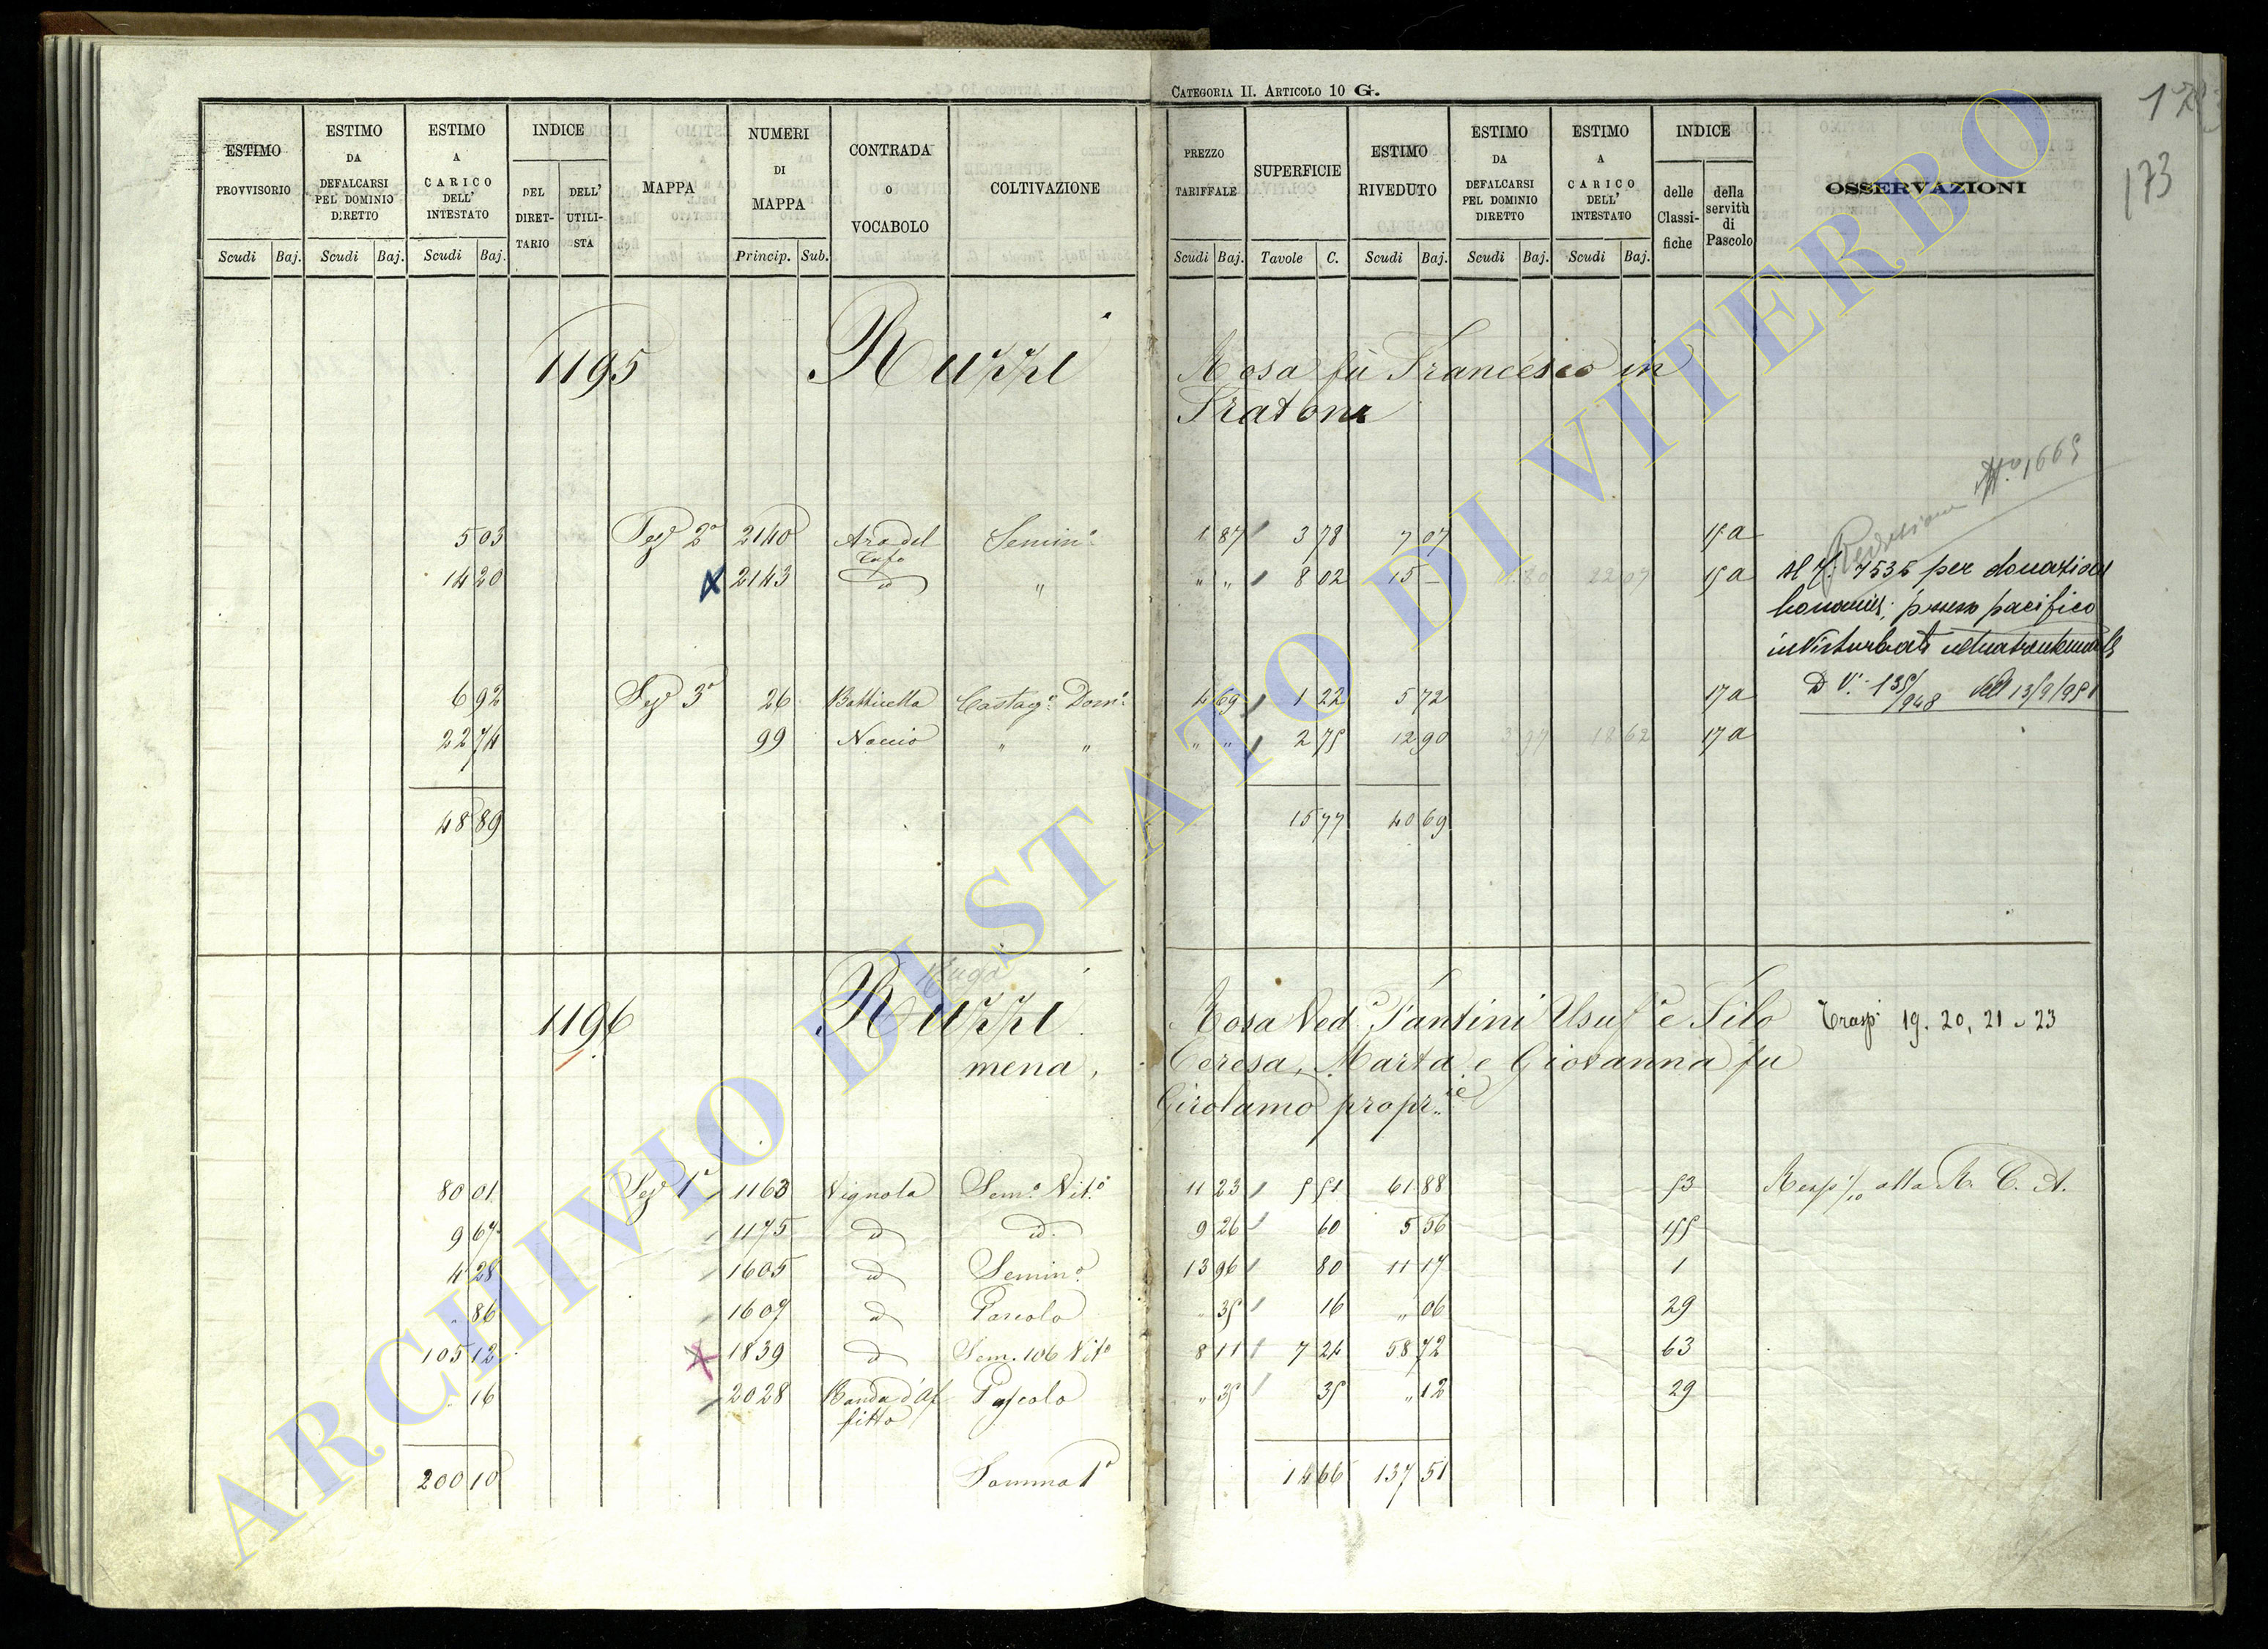 CATEGORIA II. ARTICOLO 10 G.
173
ESTIMO PROVVISORIO Scudi Baj.
ESTIMO DA DEFALCARSI PEL DOMINIO DIRETTO Scudi Baj.
ESTIMO A CARICO DELL' INTESTATO Scudi Baj.
INDICE DEL DIRETTARIO DELL' UTILISTA
MAPPA
NUMERI DI MAPPA Princip. Sub.
CONTRADA O VOCABOLO
COLTIVAZIONE
PREZZO TARIFFALE Scudi Baj.
SUPERFICIE Tavole C.
ESTIMO RIVEDUTO Scudi Baj.
ESTIMO DA DEFALCARSI PEL DOMINIO DIRETTO Scudi Baj.
ESTIMO A CARICO DELL' INTESTATO Scudi Baj.
INDICE delle Classifiche della servitù di Pascolo
OSSERVAZIONI
1195 Ruzzi Rosa fù Francesco in
N.º 1665
5 03 Sez 2ª 2140 Ara del Tufo Semin.º 1 87 3 78 7 07 15 a
14 20 2143 id " " " 8 02 15 – 22 07 15 a
7535 per donazione
possesso pacifico
6 92 Sez 3ª 26 Botticella Castag.º Dom.º 4 69 1 22 5 72 17 a
13/9/951
22 74 99 Noccio " " " " 2 75 12 90 3 97 18 62 17 a
48 89 15 77 40 69
1196 Ruzzi Rosa Ved.ª Fantini Usuf.ª e Filo
Trasp. 19. 20, 21 e 23
mena, Teresa, Marta e Giovanna fu
Girolamo propr.ie
80 01 Sez 1ª 1163 Vignola Sem.º Vit.º 11 23 5 51 61 88 53 alla R. C. A.
9 67 1175 id id. 9 26 60 5 56 155
4 28 1605 id Semin.º 13 96 80 11 17 1
" 86 1607 id Pascolo " 35 16 " 06 29
105 12 1839 id Sem. 106 Vit.º 8 11 7 24 58 72 63
" 16 2028 Banda d'Affitto Pascolo " 35 35 " 12 29
200 10 Somma 1ª 14 66 137 51
ARCHIVIO DI STATO DI VITERBO